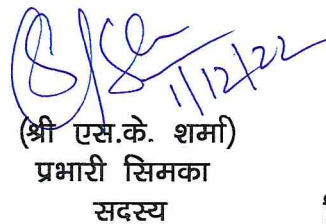 1/12/22
(श्री एस.के. शर्मा)
प्रभारी सिमका
सदस्य